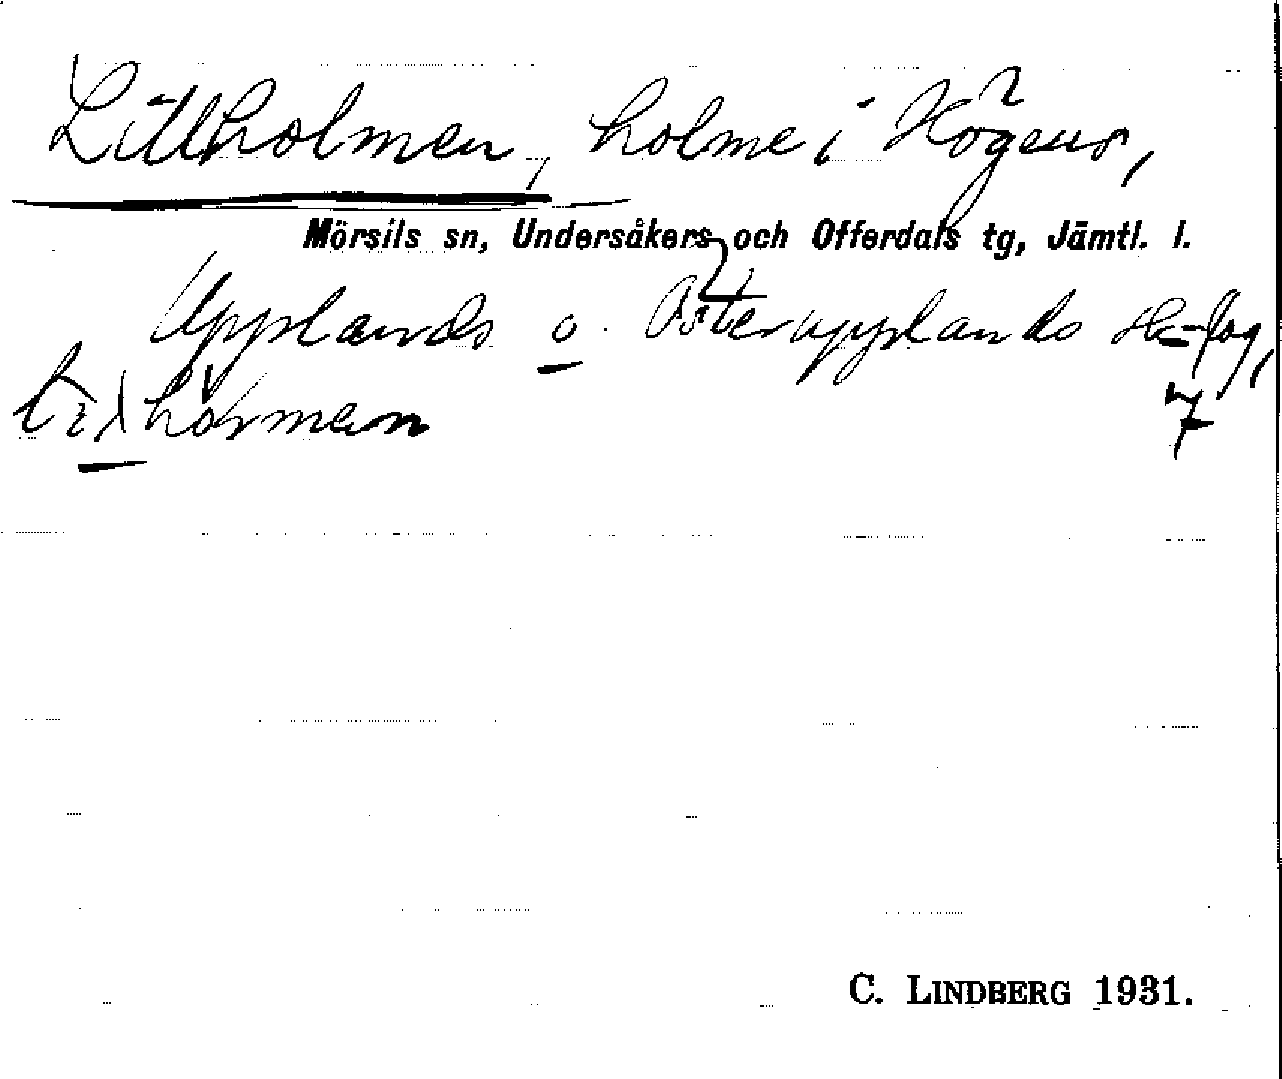 Lillholmen, holme i
Mörsils sn, Undersåkers och Offerdals tg, Jämtl. l.
Upplands o. Österupplands
7
C. LINDBERG 1931.